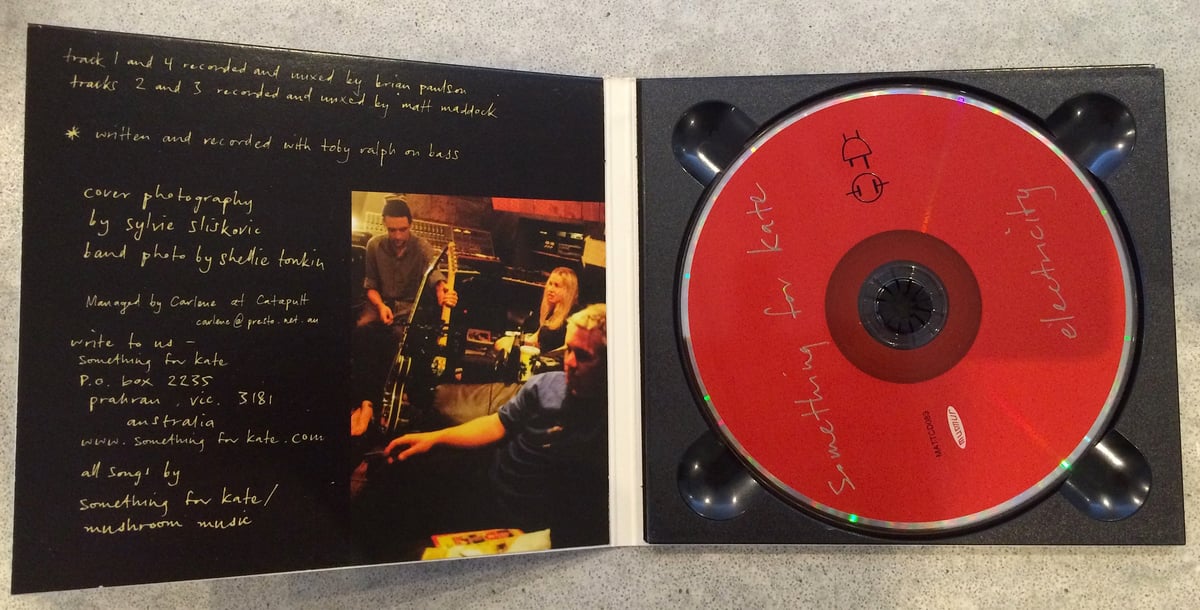 track 1 and 4 recorded and mixed by brian paulson
tracks 2 and 3 recorded and mixed by matt maddock
* written and recorded with toby ralph on bass
cover photography
by sylvie sliskovic
band photo by shellie tonkin
Managed by Carlene at Catapult
carlene@presto.net.au
write to us -
something for kate
P.o. box 2235
prahran . vic. 3181
australia
www.something for kate.com
all songs by
something for kate/
mushroom music
something for kate
electricity
murmur
MATTCD089